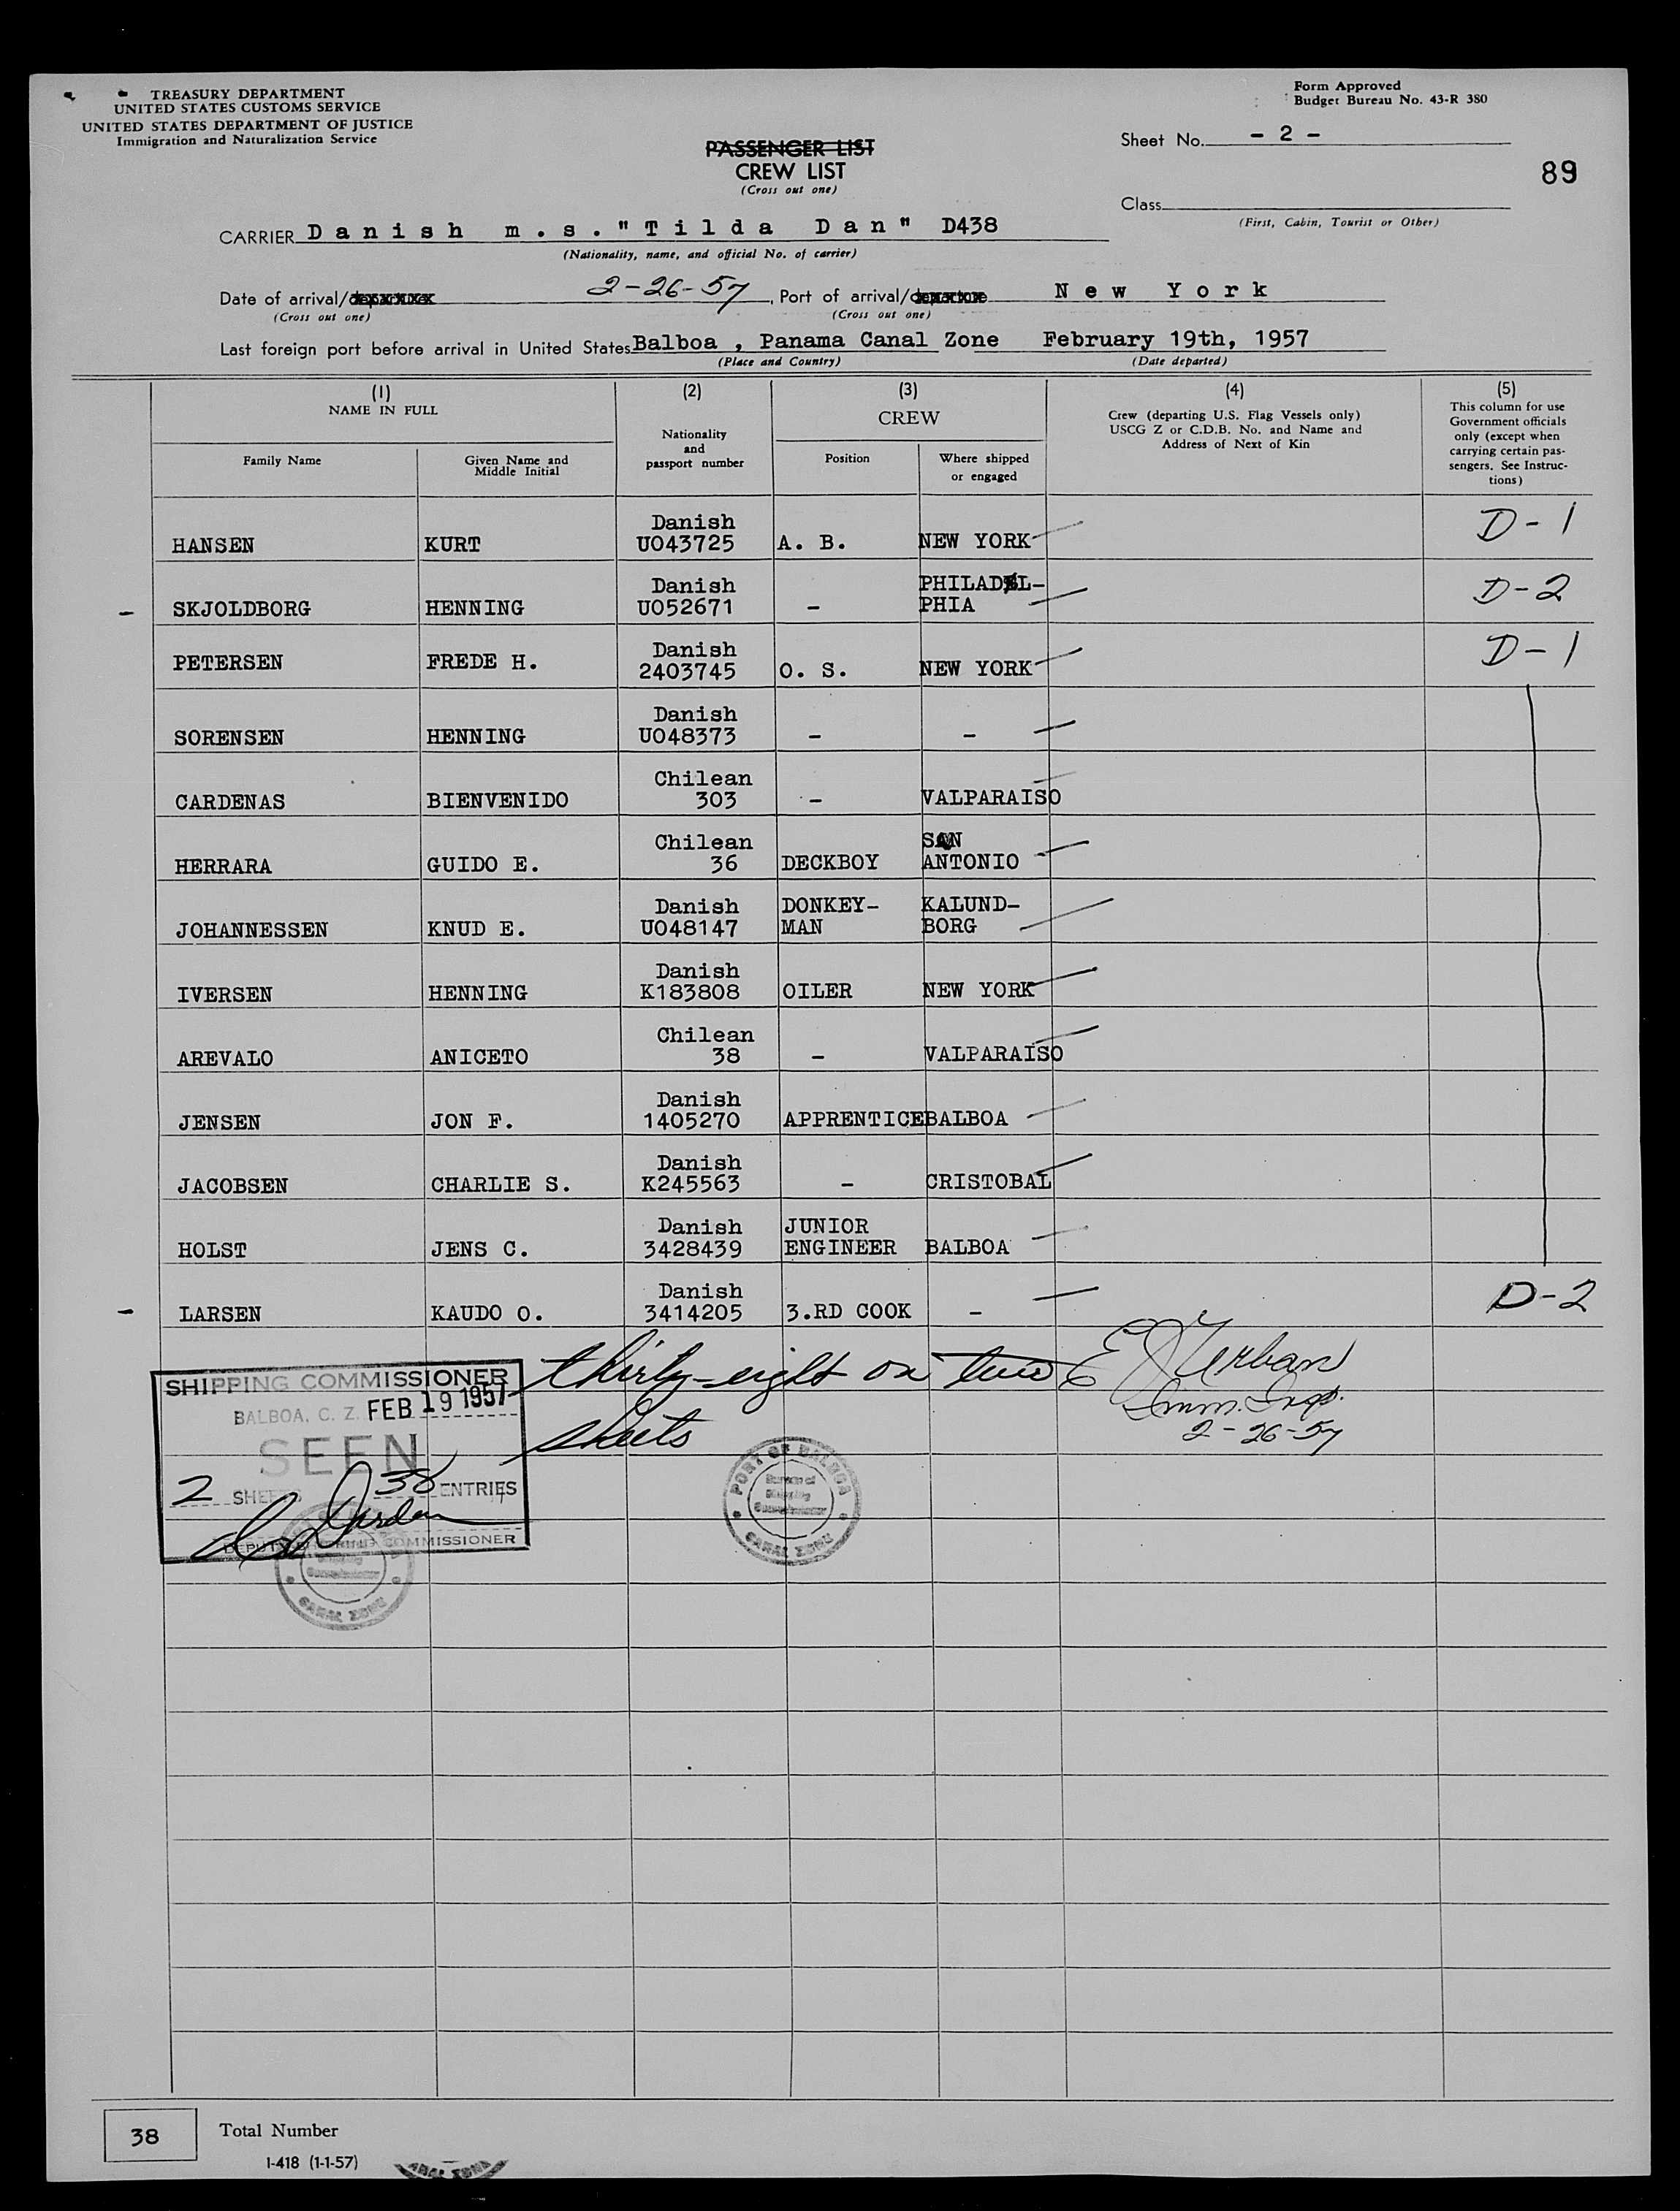 TREASURY DEPARTMENT
UNITED STATES CUSTOMS SERVICE
UNITED STATES DEPARTMENT OF JUSTICE
Immigration and Naturalization Service
Form Approved
Budget Bureau No. 43-R 380
PASSENGER LIST
CREW LIST
(Cross out one)
Sheet No. - 2 -
89
Class
(First, Cabin, Tourist or Other)
CARRIER Danish m.s."Tilda Dan" D438
(Nationality, name, and official No. of carrier)
Date of arrival/departure 2-26-57, Port of arrival/departure New York
(Cross out one) (Cross out one)
Last foreign port before arrival in United States Balboa , Panama Canal Zone February 19th, 1957
(Place and Country) (Date departed)
(1) (2) (3) (4) (5)
NAME IN FULL
Family Name
Given Name and
Middle Initial
Nationality
and
passport number
CREW
Position
Where shipped
or engaged
Crew (departing U.S. Flag Vessels only)
USCG Z or C.D.B. No. and Name and
Address of Next of Kin
This column for use
Government officials
only (except when
carrying certain pas-
sengers. See Instruc-
tions)
Danish
HANSEN KURT U043725 A. B. NEW YORK D-1
Danish PHILADEL-
SKJOLDBORG HENNING U052671 - PHIA D-2
Danish
PETERSEN FREDE H. 2403745 O. S. NEW YORK D-1
Danish
SORENSEN HENNING U048373 - -
Chilean
CARDENAS BIENVENIDO 303 - VALPARAISO
Chilean SAN
HERRARA GUIDO E. 36 DECKBOY ANTONIO
Danish DONKEY- KALUND-
JOHANNESSEN KNUD E. U048147 MAN BORG
Danish
IVERSEN HENNING K183808 OILER NEW YORK
Chilean
AREVALO ANICETO 38 - VALPARAISO
Danish
JENSEN JON F. 1405270 APPRENTICE BALBOA
Danish
JACOBSEN CHARLIE S. K245563 - CRISTOBAL
Danish JUNIOR
HOLST JENS C. 3428439 ENGINEER BALBOA
Danish
LARSEN KAUDO O. 3414205 3.RD COOK - D-2
thirty-eight on two
sheets
E J Urban
Imm. Insp.
2-26-57
SHIPPING COMMISSIONER
BALBOA, C. Z. FEB 19 1957
SEEN
2 SHEETS 38 ENTRIES
DEPUTY SHIPPING COMMISSIONER
CANAL ZONE
PORT OF BALBOA
Bureau of
Shipping
Commissioner
CANAL ZONE
38 Total Number
I-418 (1-1-57)
CANAL ZONE